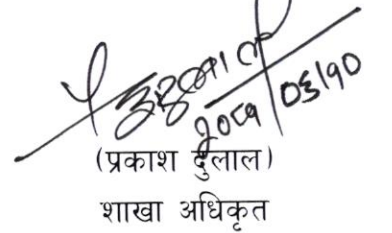 २०८१/०६/१०
(प्रकाश दुलाल)
शाखा अधिकृत